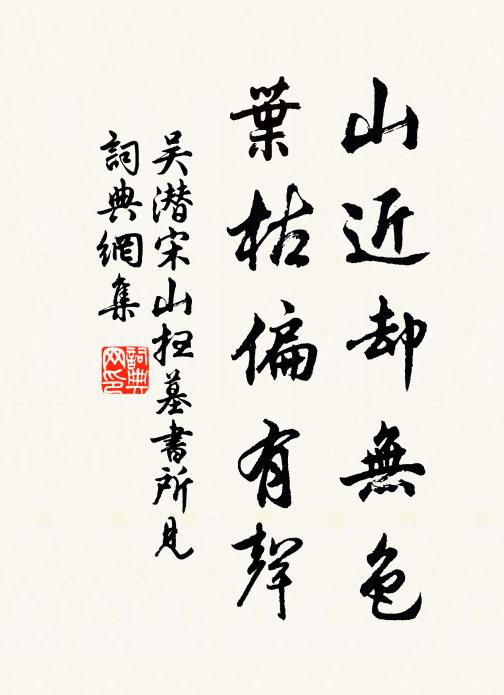 山近却無色
葉枯偏有聲
吴潜宋山抠墓書所見
詞典網集
詞典
网印